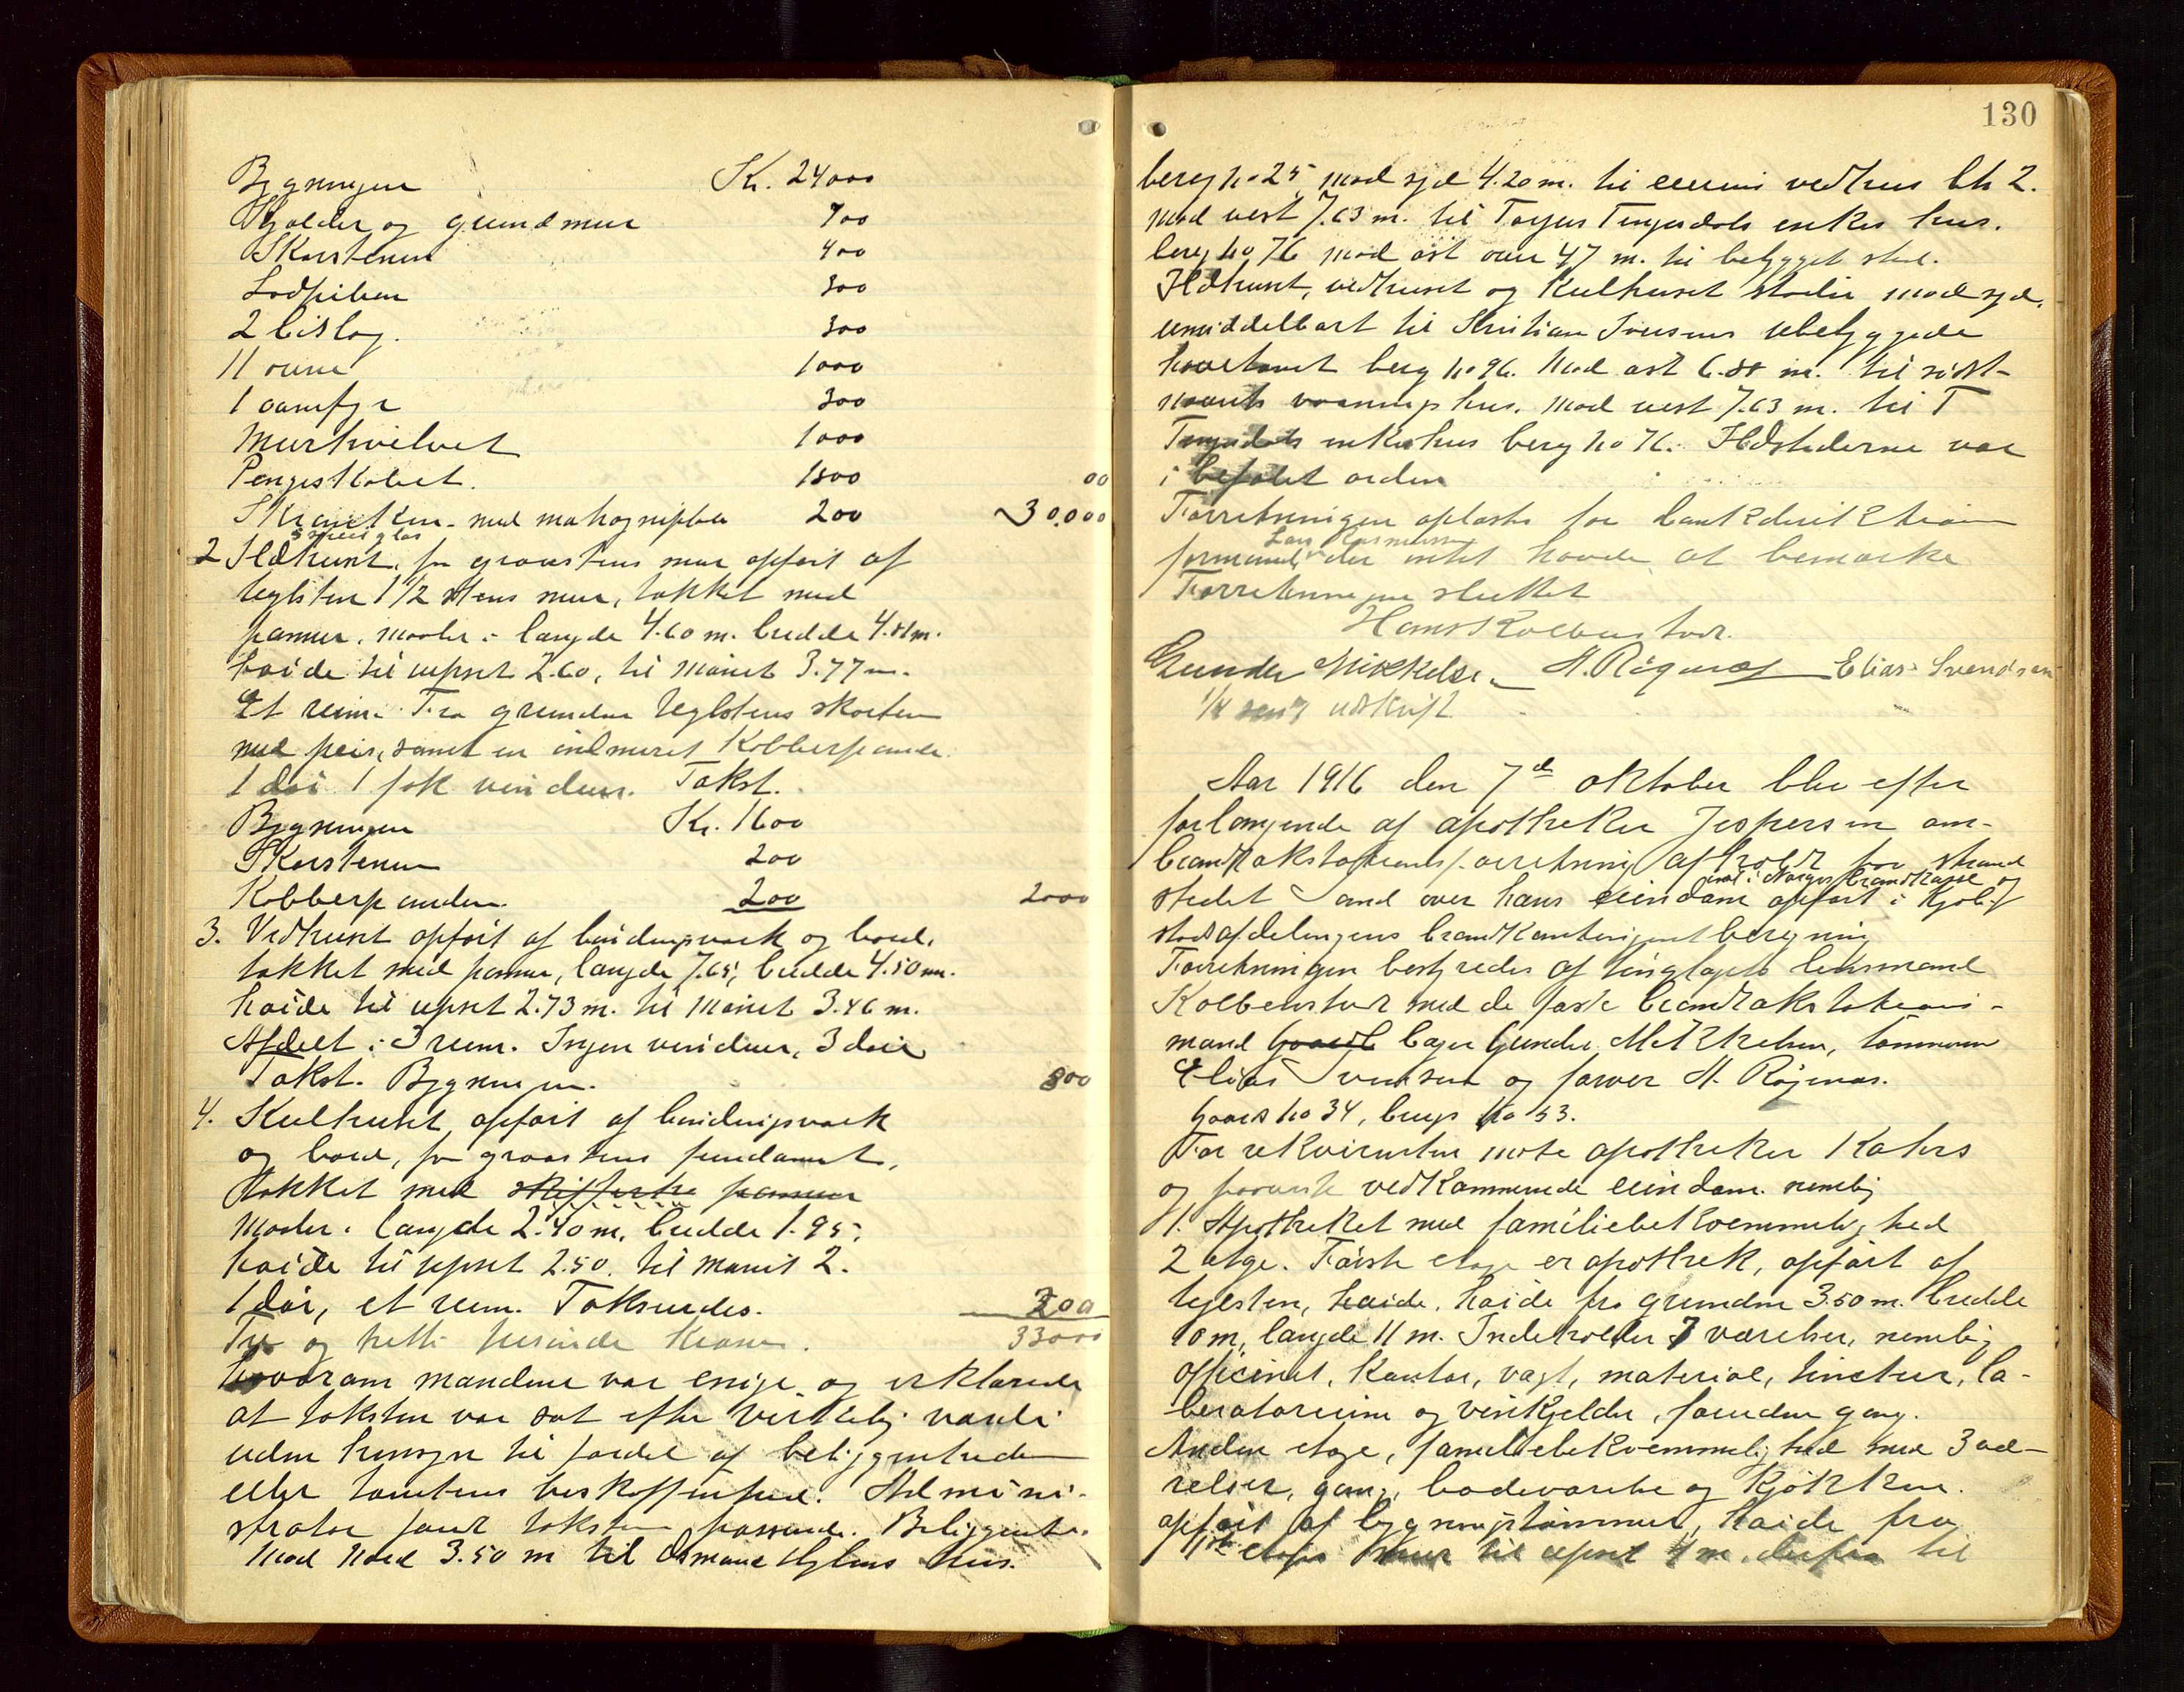 Bygningen Kr. 24000
Kjælder og grundmur 700
Skorstenen 400
Lodpiben 300
2 bislag. 300
11 ovne 1000
1 komfyr 300
Murhvelvet 1000
Pengeskabet. 1800 00
Skranken med mahogniplade 200 30,000
speilglas
2 Ildhuset, paa graastens mur opført af
teglsten 1 1/2 stens mur, tækket med
panner, maaler: længde 4.60 m. bredde 4.81 m.
høide til upset 2.60, til mønet 3.77 m.
Et rum. Fra grunden teglstens skorsten
med peis, samt en indmuret kobberpande.
1 dør 1 fak vinduer. Takst.
Bygningen Kr. 1600
Skorstenen 200
Kobberpanden. 200 2000
3. Vedhuset opført af bindingsværk og bord,
tækket med panner, længde 7.65, bredde 4.50 m.
høide til upset 2.73 m. til mønet 3.46 m.
Afdelt i 3 rum. Ingen vinduer, 3 døre
Takst. Bygningen. 800
4. Kulhuset, opført af bindingsværk
og bord, paa graastens fundament,
tækket med skifferhe panner
Maaler: længde 2.40 m, bredde 1.95,
høide til upset 2.50. til mønet 2.
1 dør, et rum. Takseredes. 200
Tre og tretti tusinde kroner. 33000
hvorom mændene var enige og erklærede
at taksten var sat efter virkelig værdi
uden hensyn til fordel af beliggenheden
eller tomtens beskaffenhed. Admini-
strator fandt taksten passende. Beliggenhe.
Mod nord 3.50 m til Osmund hus.
130
bereg no 25, mod syd 4.20 m. til vedhus lit 2.
mod vest 7.63 m. til Torger Tengesdals enkes hus.
bereg no 76 mod øst over 47 m. til bebygget sted.
Ildhuset, vedhuset og kulhuset støder mod syd.
umiddelbart til Kristian Iversens ubebyggede
bereg no 96. Mod øst 6.88 m. til sidst-
nævnte vaaningshus. mod vest 7.63 m. til T
Tengesdals enkes hus bereg no 76. Ildstederne var
i befalet orden
Forretningen oplæstes for bankdirektions
Lars Rasmussen
formand, der intet havde at bemærke
Forretningen sluttet
Hans Kolbenstvedt.
Gunder Mikkelsen H. Røgenæs Elias Svendsen
udskrift
Aar 1916 den 7de oktober blev efter
forlangende af apotheker Jespersen om-
brandtakstationsforretning afholdt paa strand
ind i Norges brandkasse og
stedet Sand over hans eiendom opført i Kjøb. &
stadsafdelingens brandkontingentberegning
Forretningen bestyredes af tinglagets lensmand
Kolbenstvedt med de faste brandtakstations-
mænd Gaard bager Gunder Mikkelsen, tømmerm
Elias Svendsen og farver H. Røgenæs.
Gaards no 34, brugs no 53.
For rekvirenten møtte apotheker Kahrs
og paaviste vedkommende eiendom. nemlig
1. Apotheket med familiebekvemmelighed
2 etage. Første etage er apothek, opført af
teglsten, høide, høide fra grunden 3.50 m. bredde
10 m, længde 11 m. Indeholder 7 værelser, nemlig
officinet, kontor, vagt, material, tinctur, la-
beratorium og vinkjelder, foruden gang.
Anden etage, familiebekvemmelighed med 3 væ-
relser, gang, badeværelse og kjøkken.
opført af bygningstømmer, høide fra
1ste etages mur til upset 4 m. derfra til